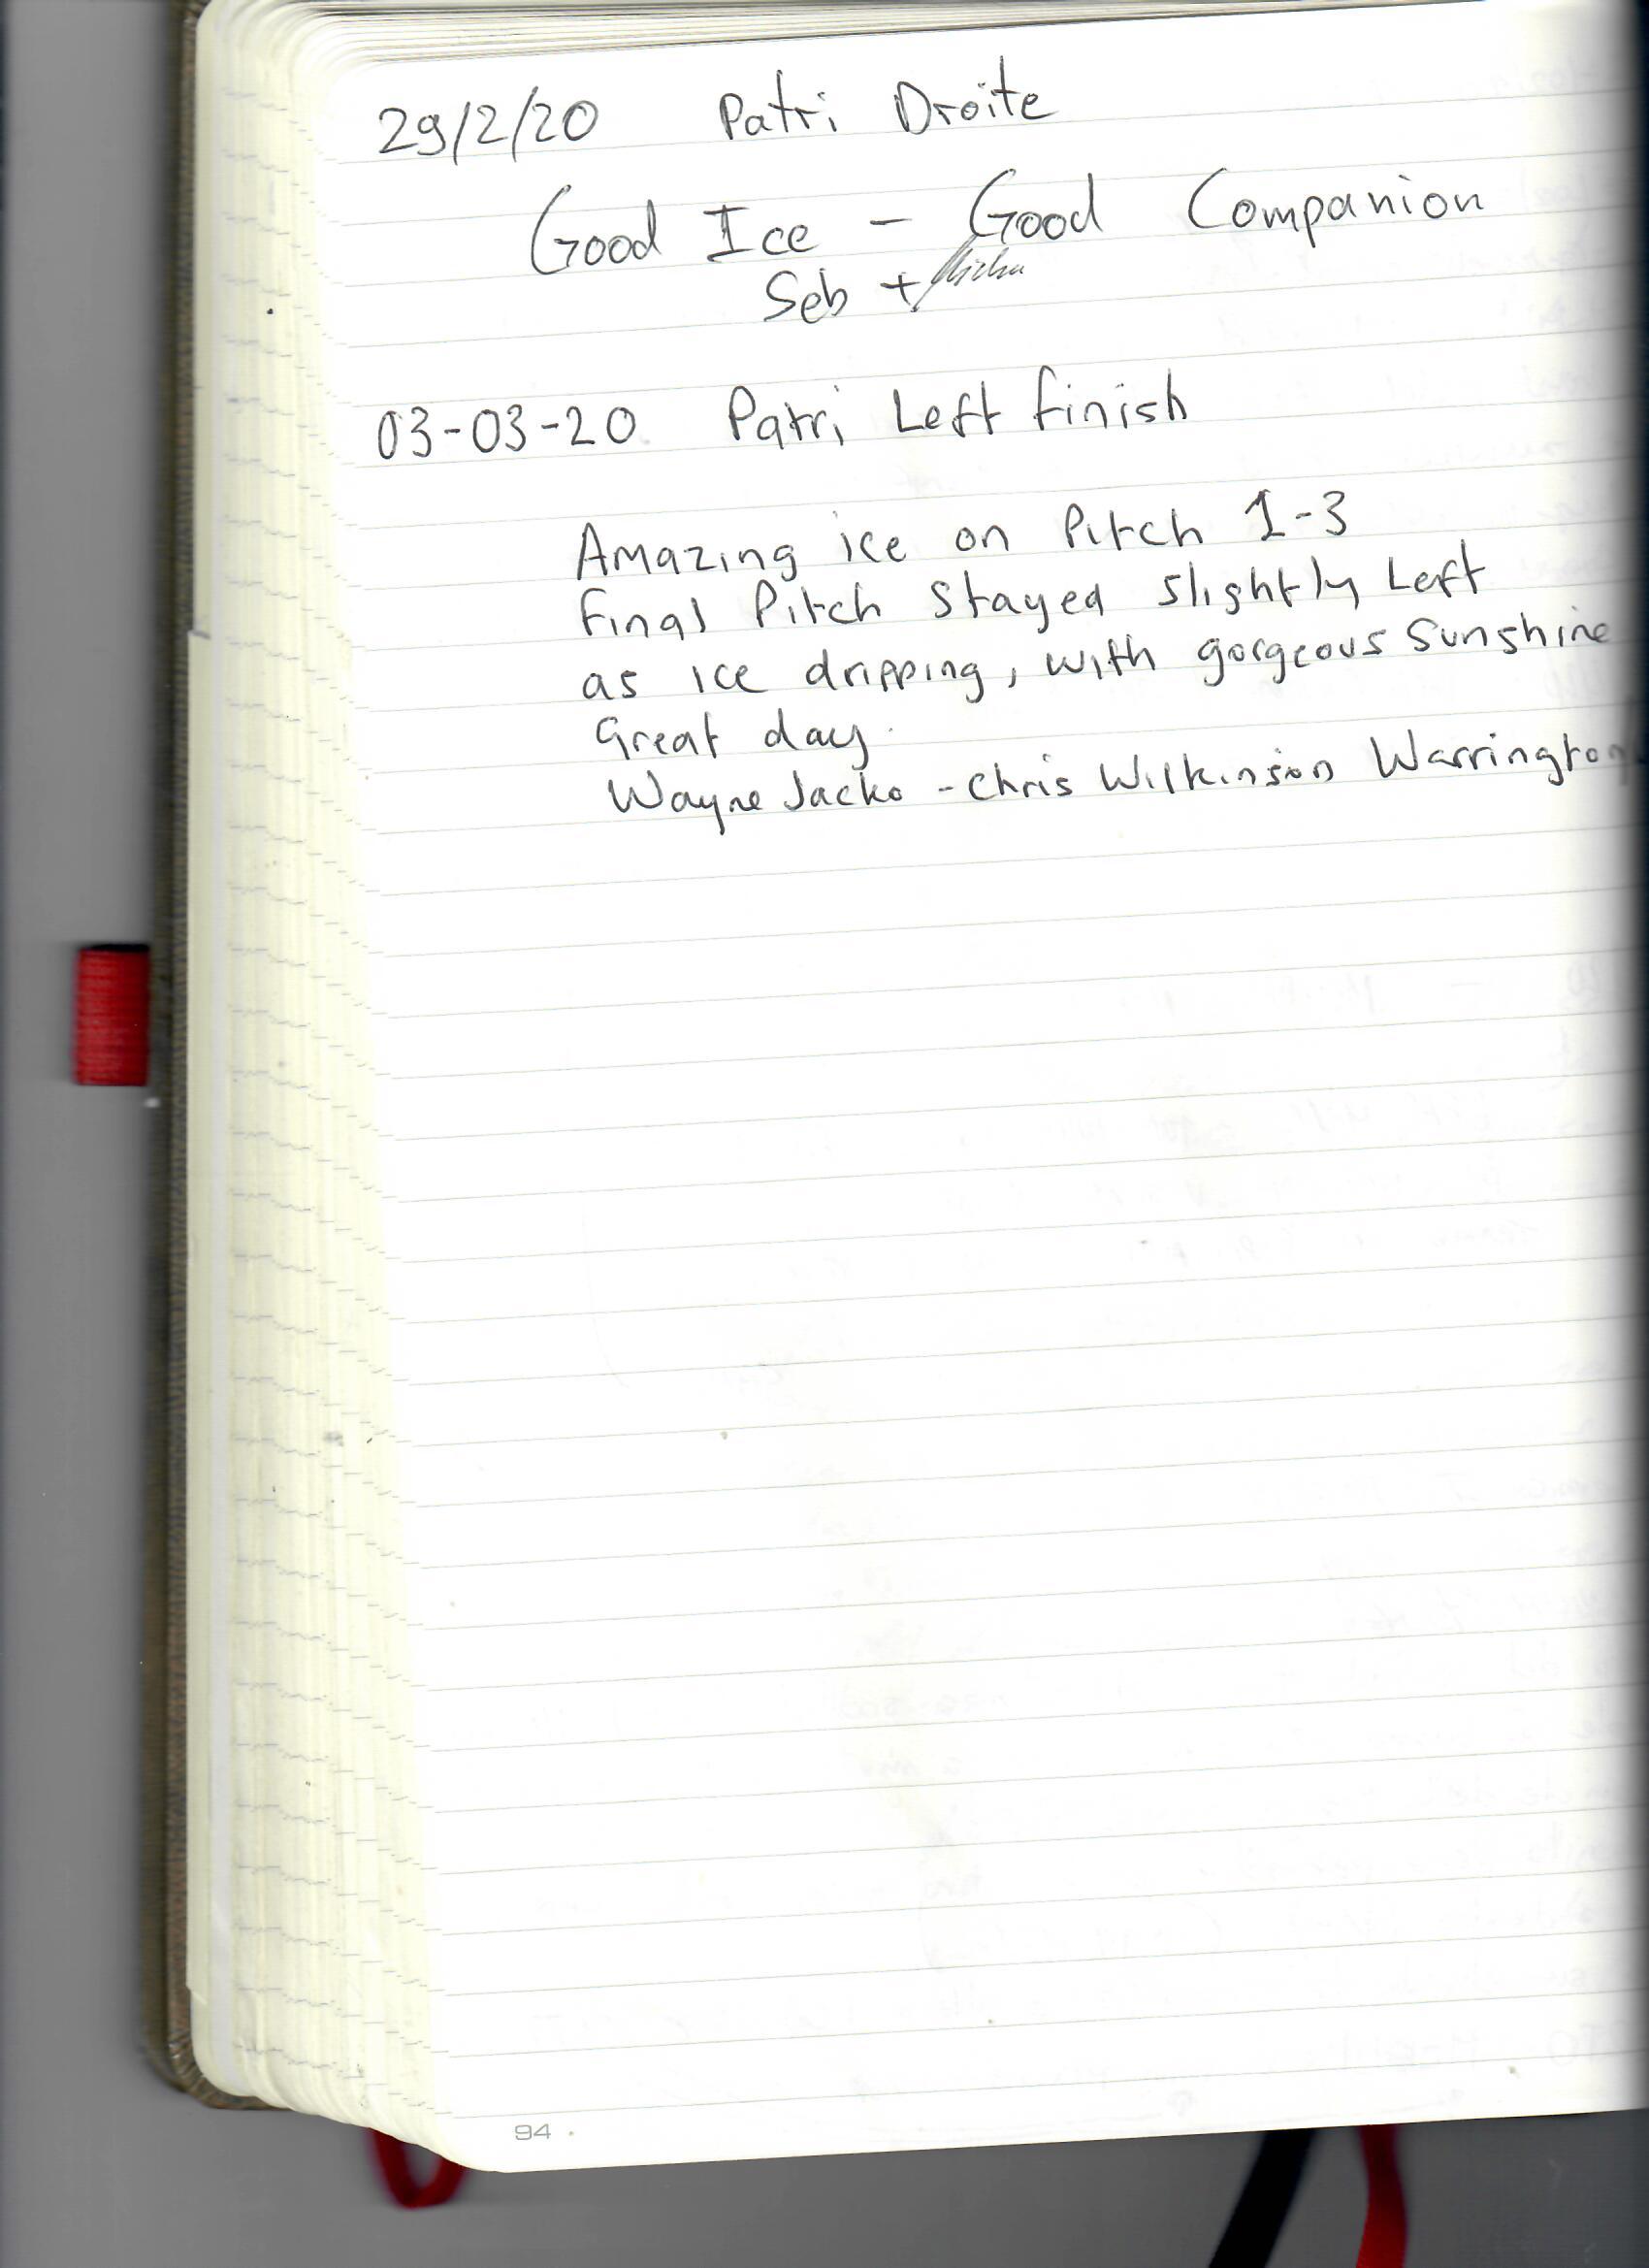 29/2/20 Patri Droite
Good Ice - Good Companion
Seb +
03-03-20 Patri Left finish
Amazing ice on Pitch 1-3
final Pitch stayed slightly Left
as ice dripping, with gorgeous Sunshine
Great day.
Wayne Jacko - Chris Wilkinson Warrington
94